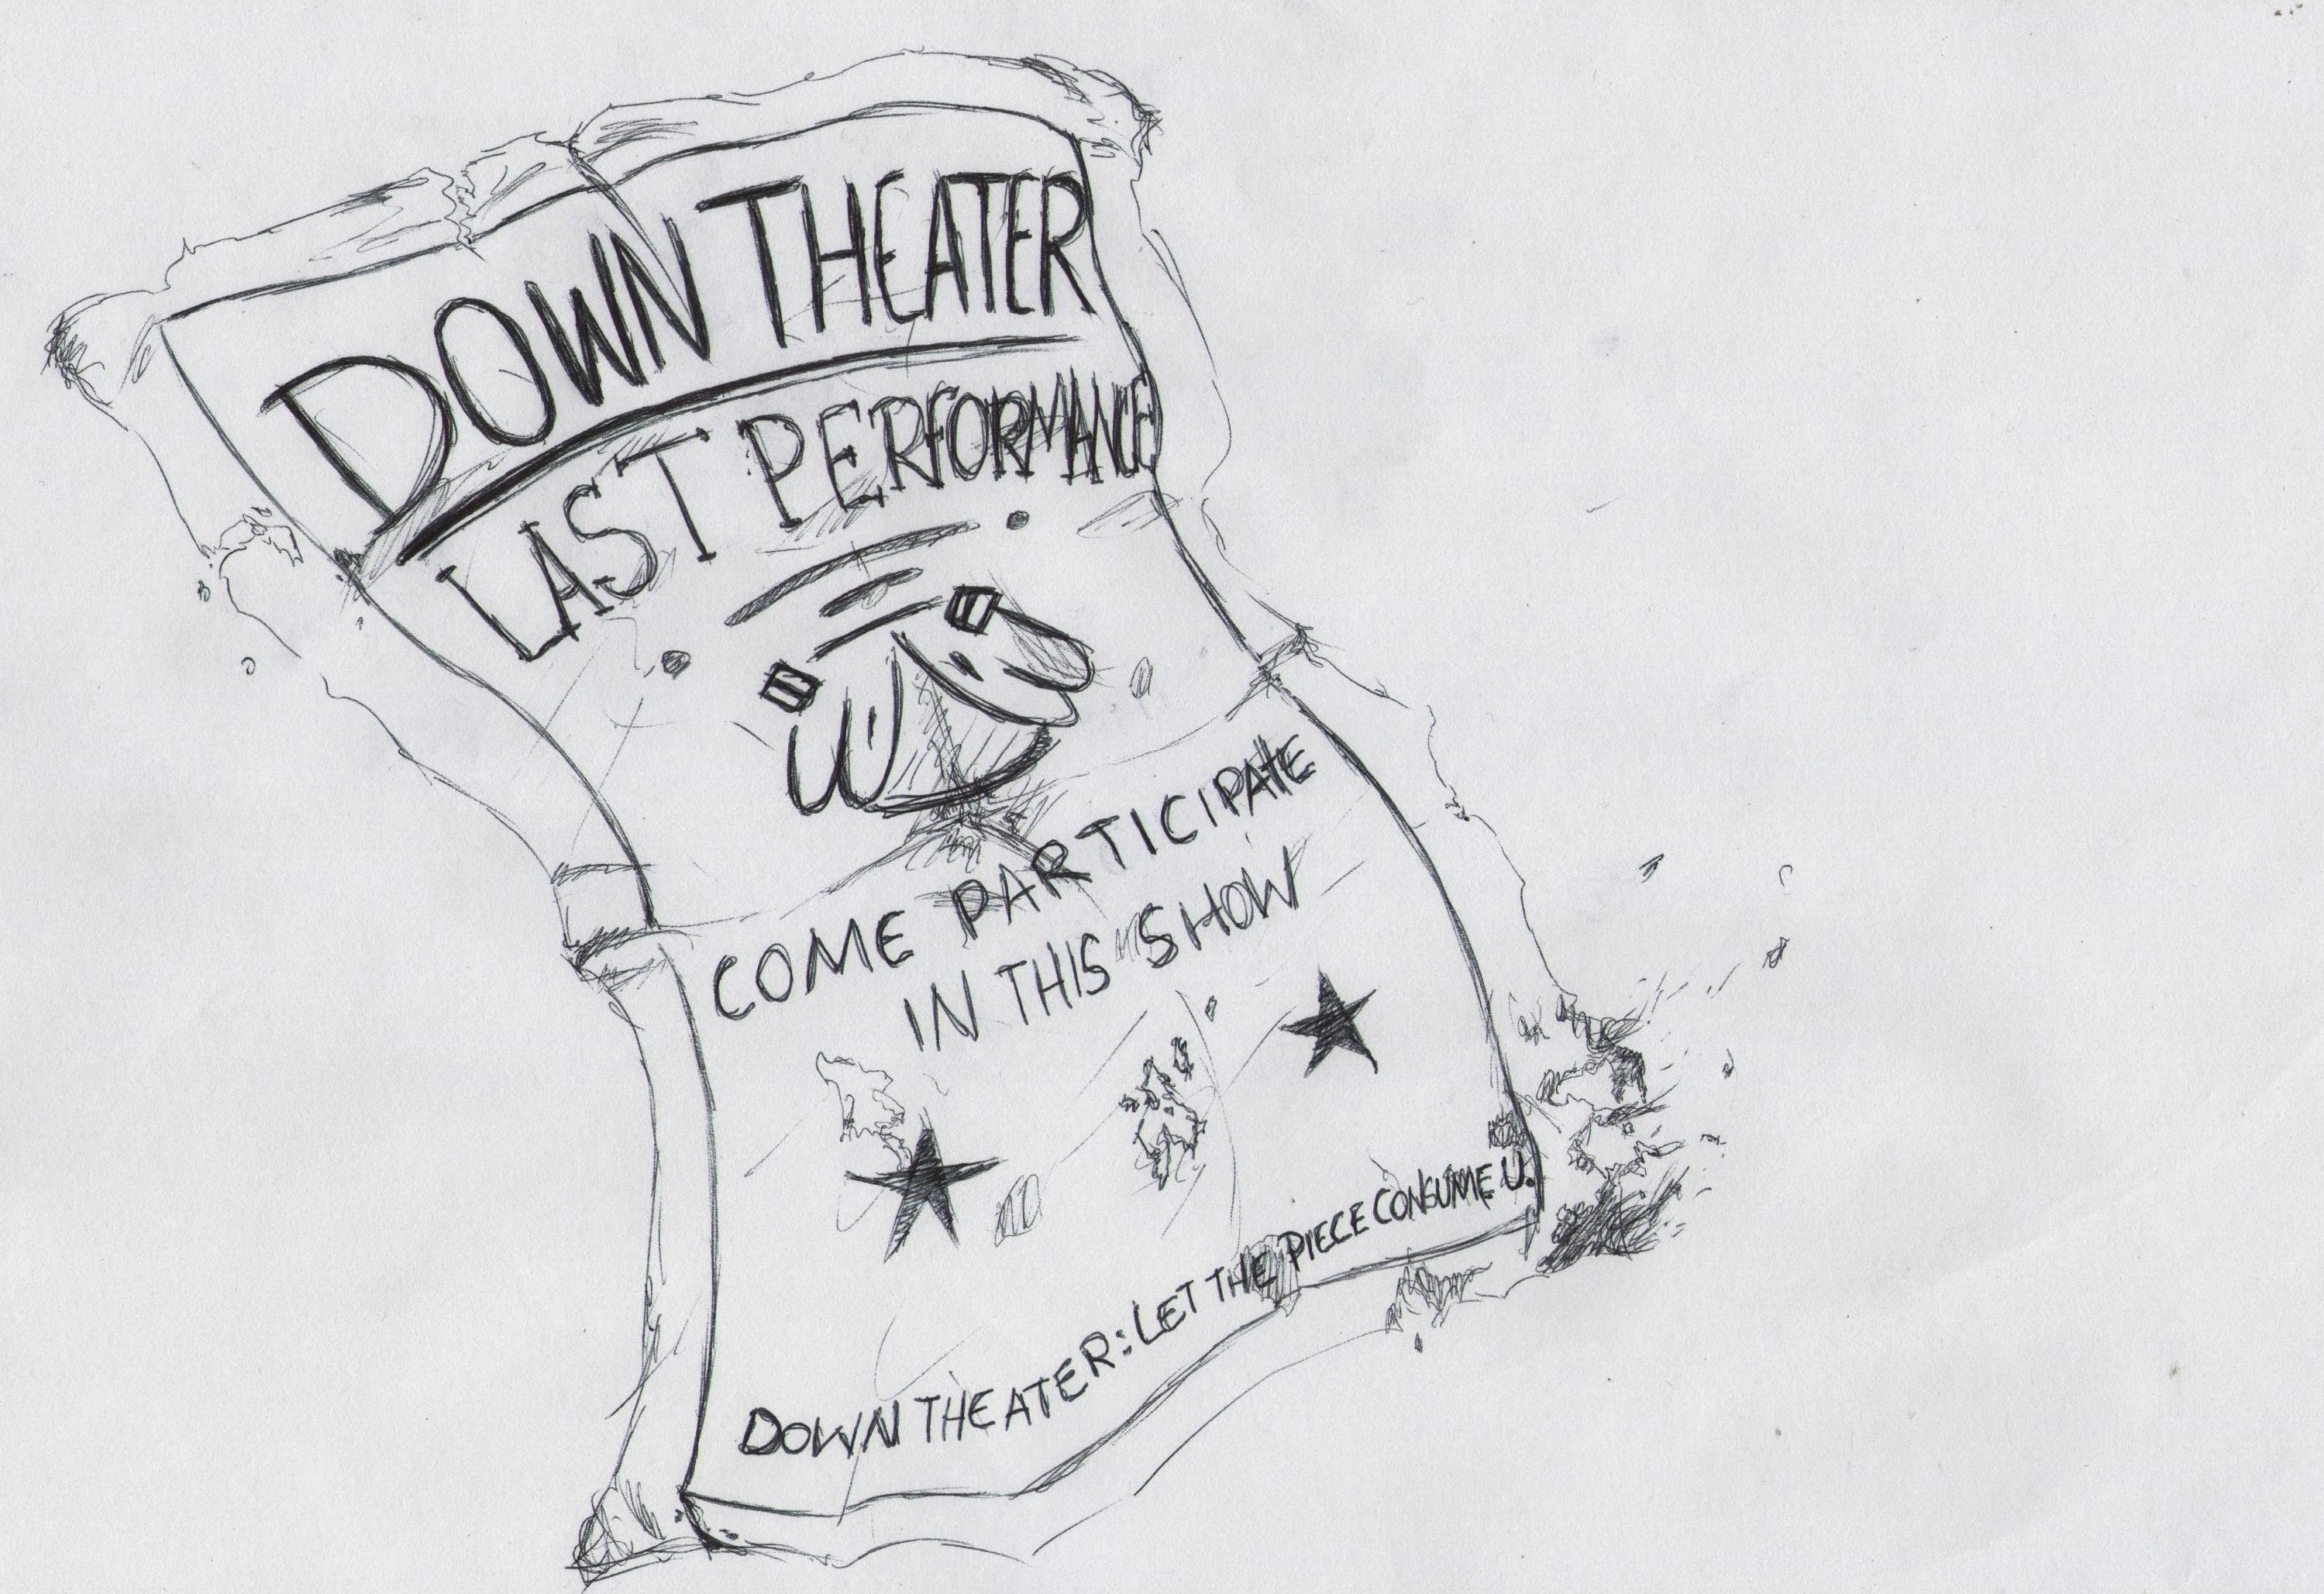 DOWN THEATER
LAST PERFORMANCE
COME PARTICIPATE
IN THIS SHOW
DOWN THEATER: LET THE PIECE CONSUME U.